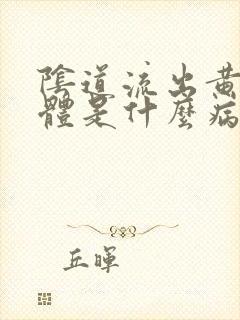 陰道流出黄
體是什麼病
丘暉